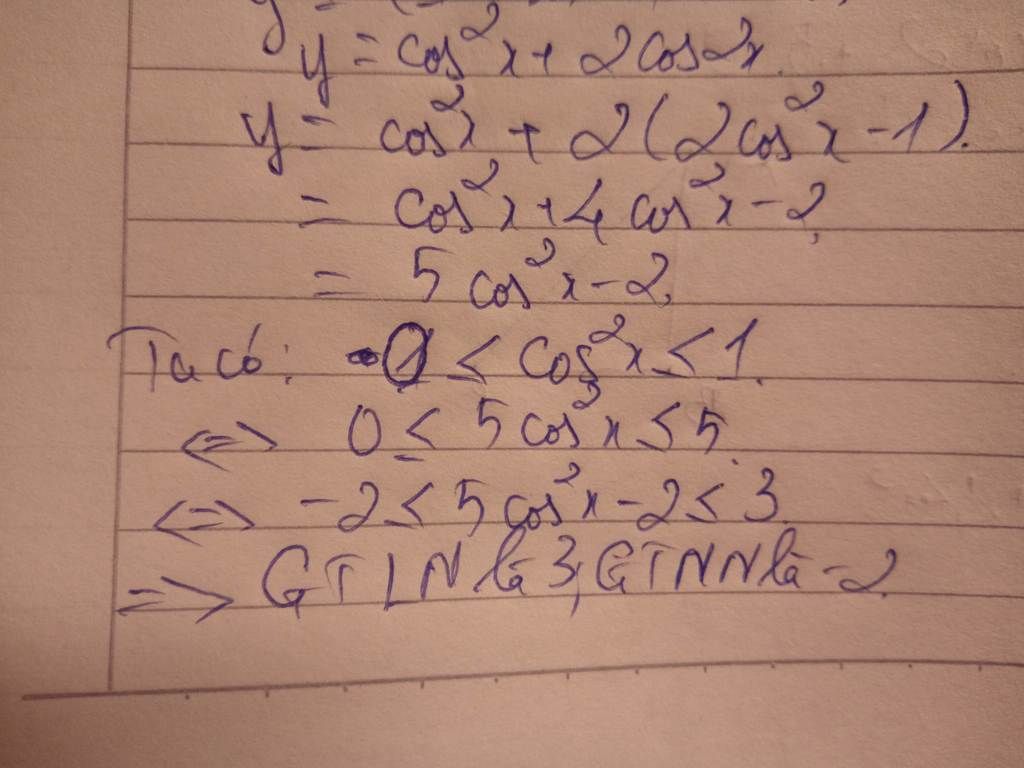 y = cos²x + 2cos2x
y = cos²x + 2(2cos²x - 1).
= cos²x + 4cos²x - 2
= 5cos²x - 2
Ta có: 0 ≤ cos²x ≤ 1.
<=> 0 ≤ 5cos²x ≤ 5
<=> -2 ≤ 5cos²x - 2 ≤ 3
=> GTLN là 3, GTNN là -2